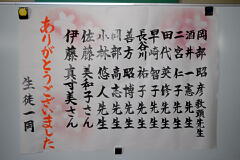 岡部昭彦教頭先生
酒井一憲先生
二宮仁子先生
田代英修先生
早崎智幸先生
長谷川祐子先生
善方昭博先生
岡部高志先生
小林悠人先生
佐藤美和子さん
伊藤真寸美さん
ありがとうございました
生徒一同